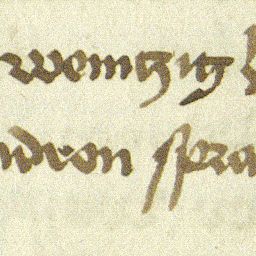 wentzig
ndron spra